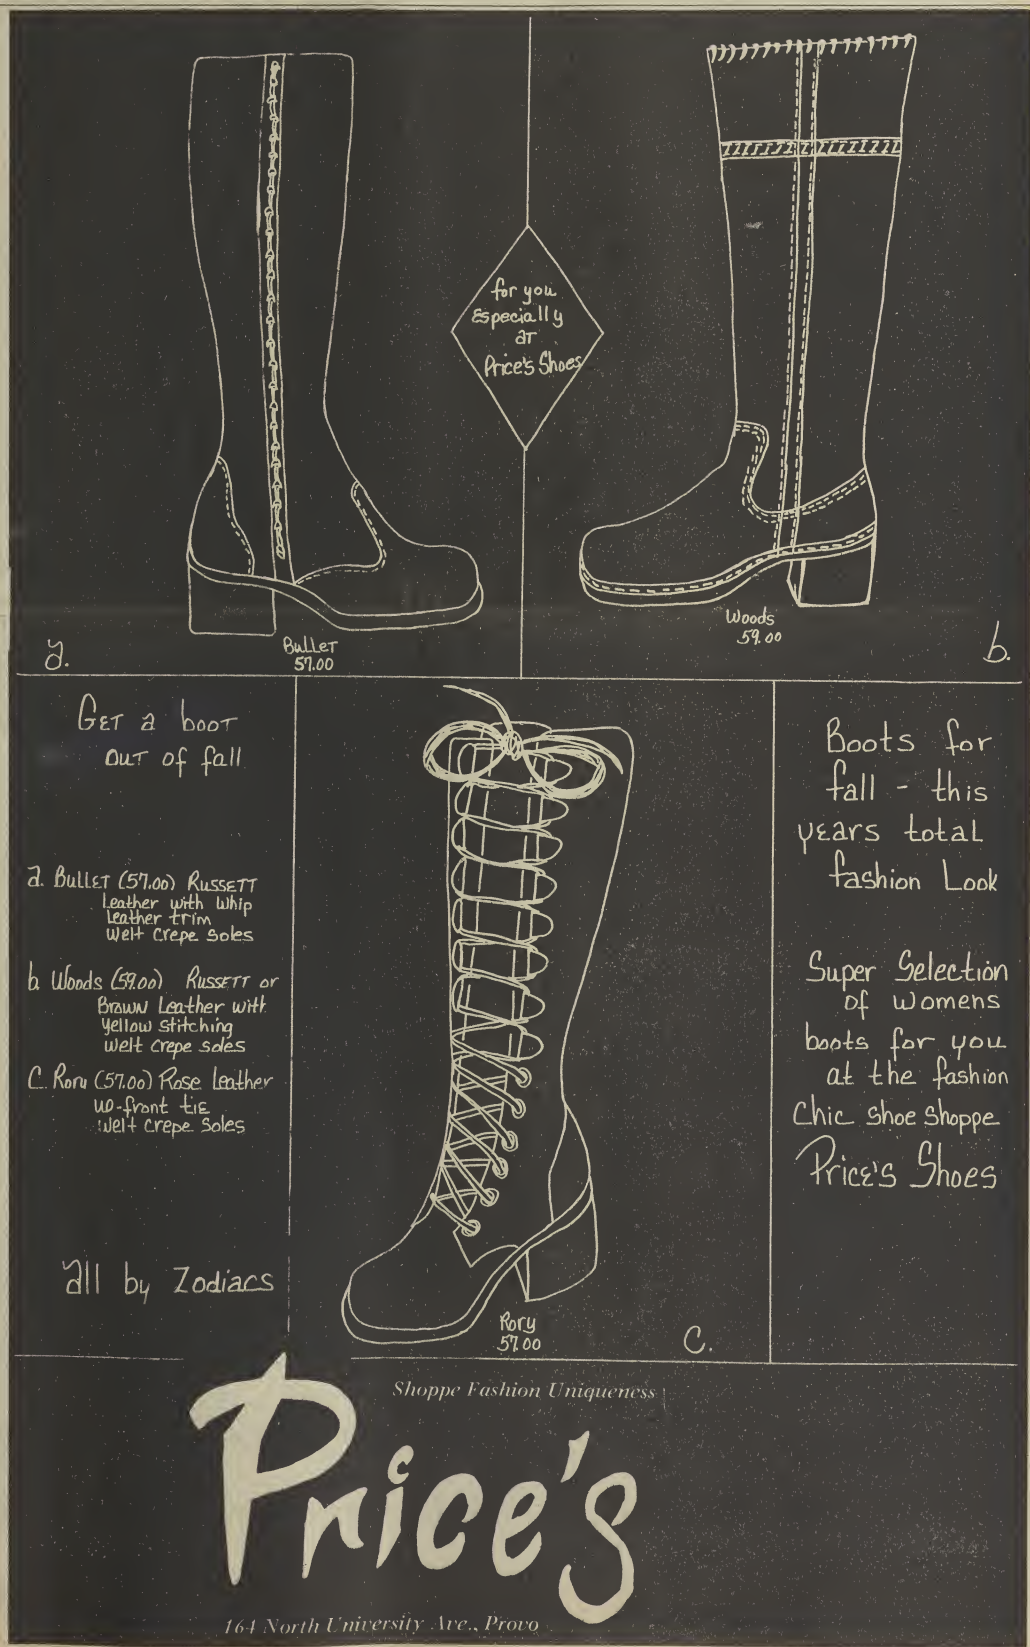 for you
Especially
at
Price's Shoes
Bullet
57.00
a.
Woods
59.00
b.
Get a boot
out of fall
a. Bullet (57.00) Russett
Leather with whip
leather trim
Welt crepe soles
b. Woods (59.00) Russett or
Brown Leather with
yellow stitching
welt crepe soles
C. Rory (57.00) Rose Leather
up-front tie
Welt crepe soles
all by Zodiacs
Rory
57.00
C.
Boots for
fall - this
years total
fashion Look
Super Selection
of womens
boots for you
at the fashion
Chic shoe shoppe
Price's Shoes
Shoppe Fashion Uniqueness
Price's
164 North University Ave., Provo